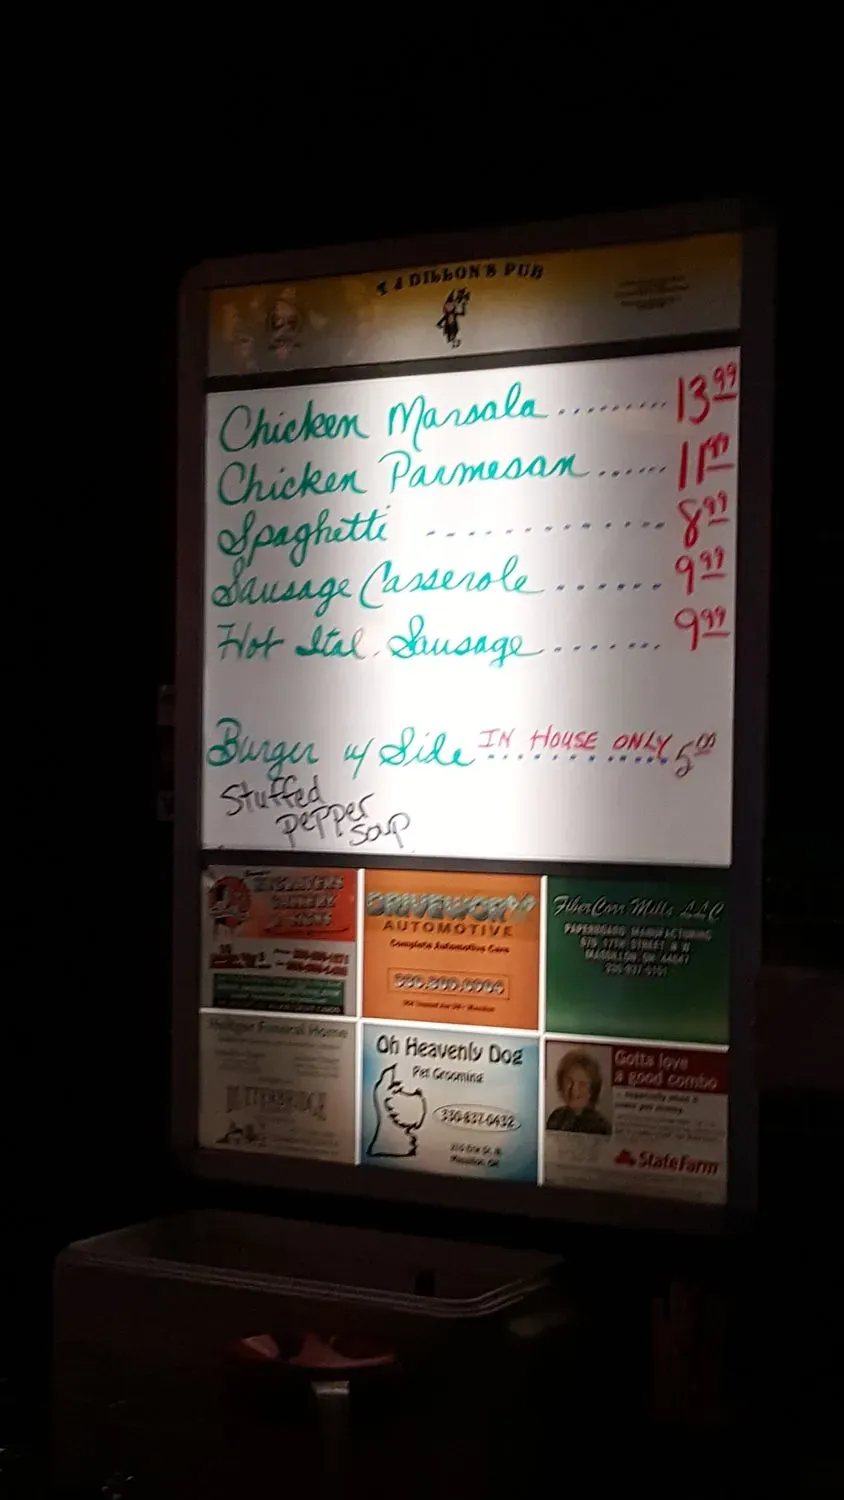 DILLON'S PUB
Chicken Marsala ......... 13.99
Chicken Parmesan ...... 11.99
Spaghetti ............. 8.99
Sausage Casserole ...... 9.99
Hot Ital. Sausage ....... 9.99
Burger w/ Side IN HOUSE ONLY ............ 5.00
Stuffed
pepper
soup
AUTOMOTIVE
Complete Automotive Care
FiberCorr Mills LLC
PAPERBOARD MANUFACTURING
670 17TH STREET N W
MASSILLON OH 44647
Funeral Home
Oh Heavenly Dog
Pet Grooming
330-837-0432
Gotta love
a good combo
State Farm